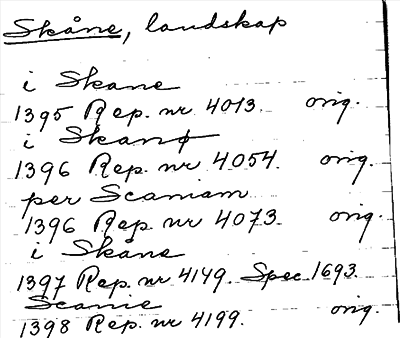 Skåne, landskap
i Skane
1395 Rep. nr 4013. orig.
i Skanø
1396 Rep. nr 4054. orig.
per Scaniam
1396 Rep. nr 4073. orig.
i Skåne
1397 Rep. nr 4149. Spec 1693.
Scanie
1398 Rep. nr 4199. orig.